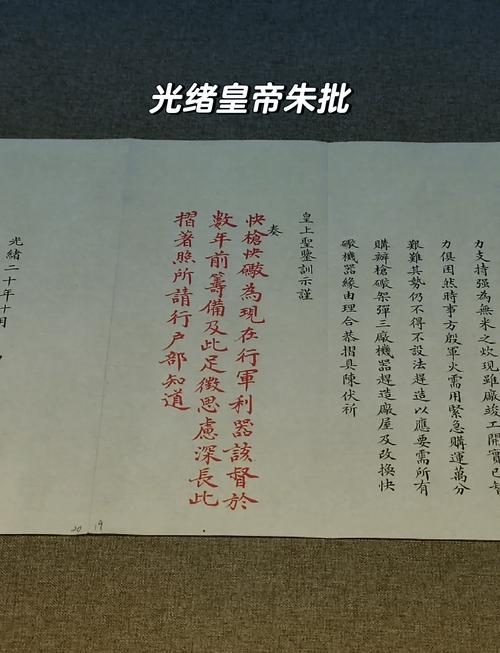 光绪皇帝朱批
力支持强為無米之炊現雖廠竣工開實已
力俱困然時事方殷軍火需用緊急購運萬分
艱難其勢仍不得不設法趕造以應要需所有
購辦槍礮架彈三廠機器趕造廠屋及改換快
礮機器緣由理合恭摺具陳伏祈
皇上聖鑒訓示謹
奏
快槍快礮為現在行軍利器該督於
數年前籌備及此足徵思慮深長此
摺著照所請行户部知道
光緒二十年十月
20 19